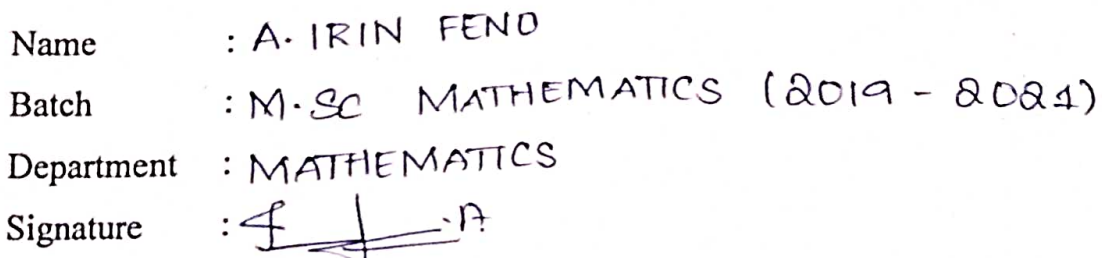 Name : A. IRIN FENO
Batch : M.SC MATHEMATICS (2019 - 2021)
Department : MATHEMATICS
Signature :